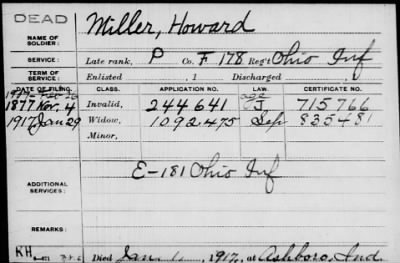 DEAD
NAME OF SOLDIER: Miller, Howard
SERVICE: Late rank, P Co. F 178 Reg't Ohio Inf
TERM OF SERVICE: Enlisted , 1 Discharged , 1
DATE OF FILING. CLASS. APPLICATION NO. LAW. CERTIFICATE NO.
1877 Nov. 4 Invalid, 244641 J 715766
1917 Jan 29 Widow, 1092475 Sep 835481
Minor,
E-181 Ohio Inf
ADDITIONAL SERVICES:
REMARKS:
KH
Died Jan. 1917, at Ashboro, Ind.